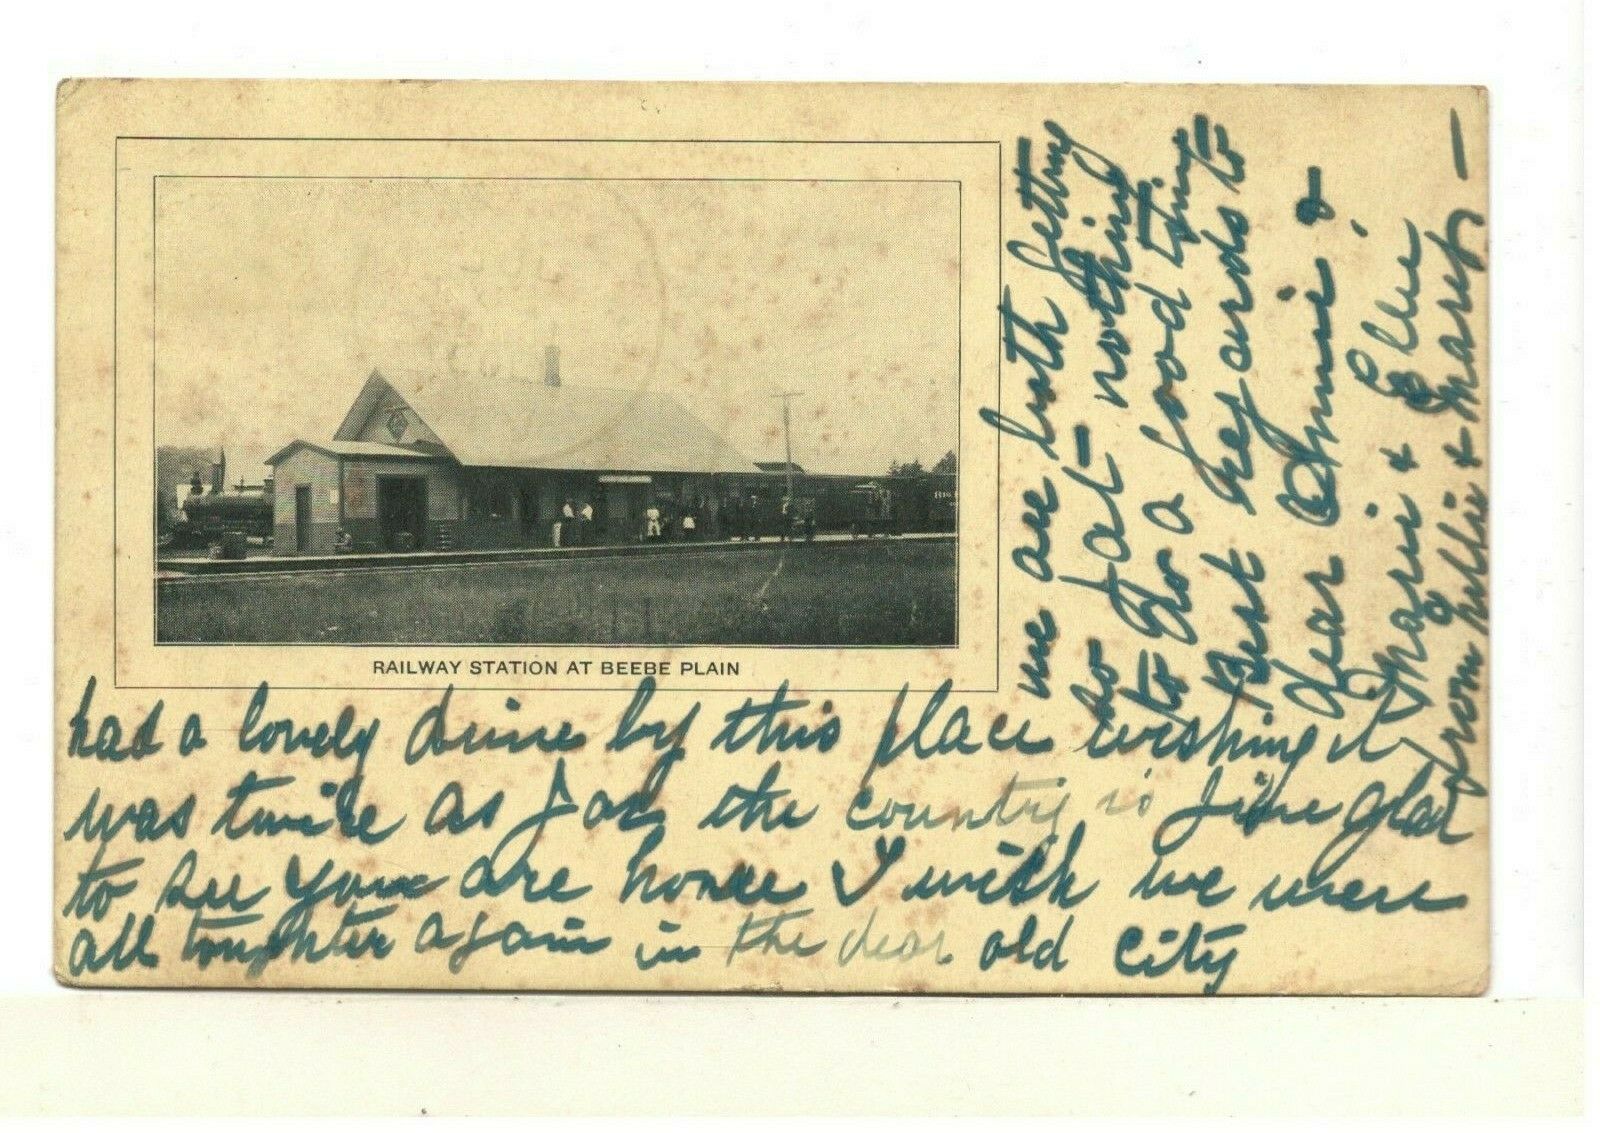 RAILWAY STATION AT BEEBE PLAIN
had a lovely drive by this place wishing it
was twice as far the country is fine glad
to see you are home I wish we were
all toughter again in the dear old city
we are both getting
so fat - nothing
to do a good time
Best regards to
dear Annie &
Marie & Ellie
from Nellie & Mary -